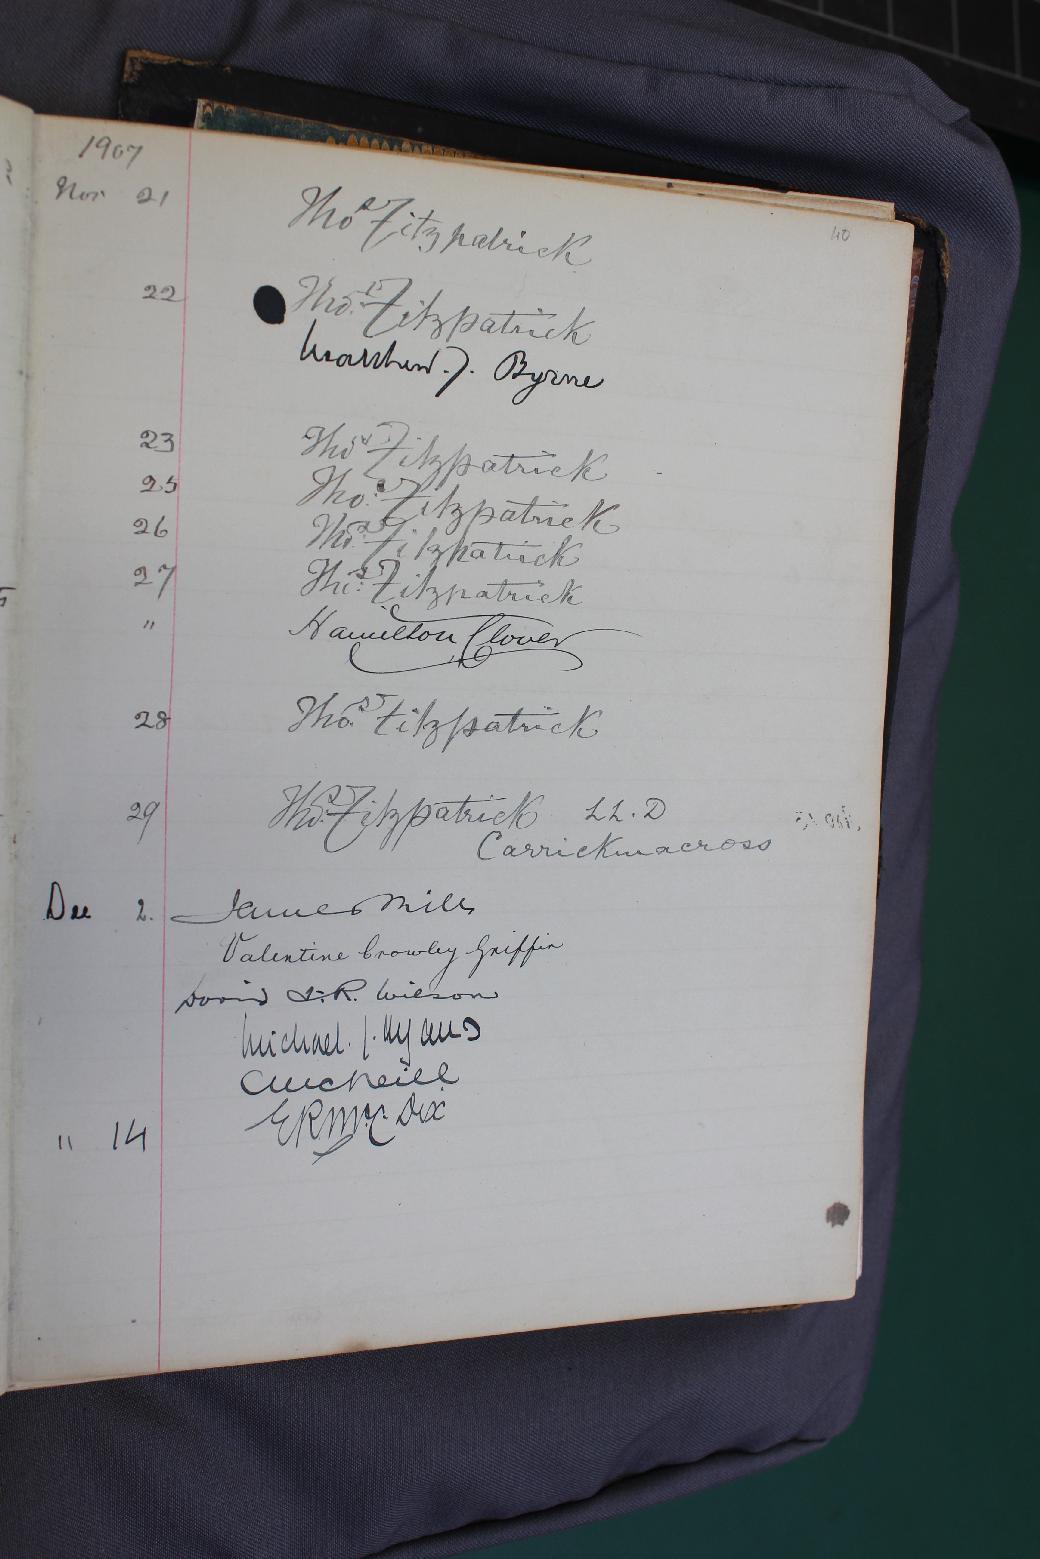 1907
40
Nov 21 Thos Fitzpatrick
22 Thos Fitzpatrick
Matthew J. Byrne
23 Thos Fitzpatrick
25 Thos Fitzpatrick
26 Thos Fitzpatrick
27 Thos Fitzpatrick
" Hamilton Clover
28 Thos Fitzpatrick
29 Thos Fitzpatrick LL.D
Carrickmacross
Dec 2. James Mills
Valentine Crowley Griffin
David R. Wilson
Michael J.
C McNeill
" 14 E R McC Dix